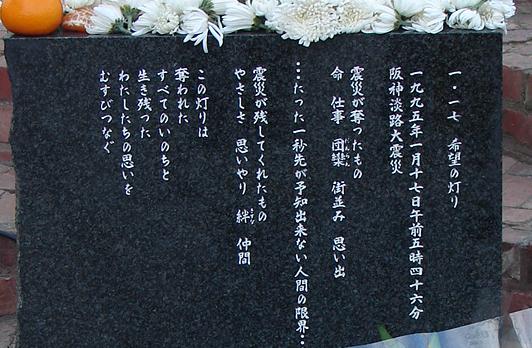 一・一七 希望の灯り
一九九五年一月十七日午前五時四十六分
阪神淡路大震災
震災が奪ったもの
命 仕事 団欒 街並み 思い出
…たった一秒先が予知出来ない人間の限界…
震災が残してくれたもの
やさしさ 思いやり 絆 仲間
この灯りは
奪われた
すべてのいのちと
生き残った
わたしたちの思いを
むすびつなぐ